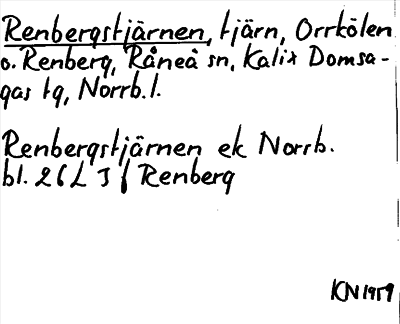 Renbergstjärnen, tjärn, Orrkölen
o. Renberg, Råneå sn, Kalix Domsa-
gas tg, Norrb. l.
Renbergstjärnen ek Norrb.
bl. 26 L J f Renberg
KN 1959